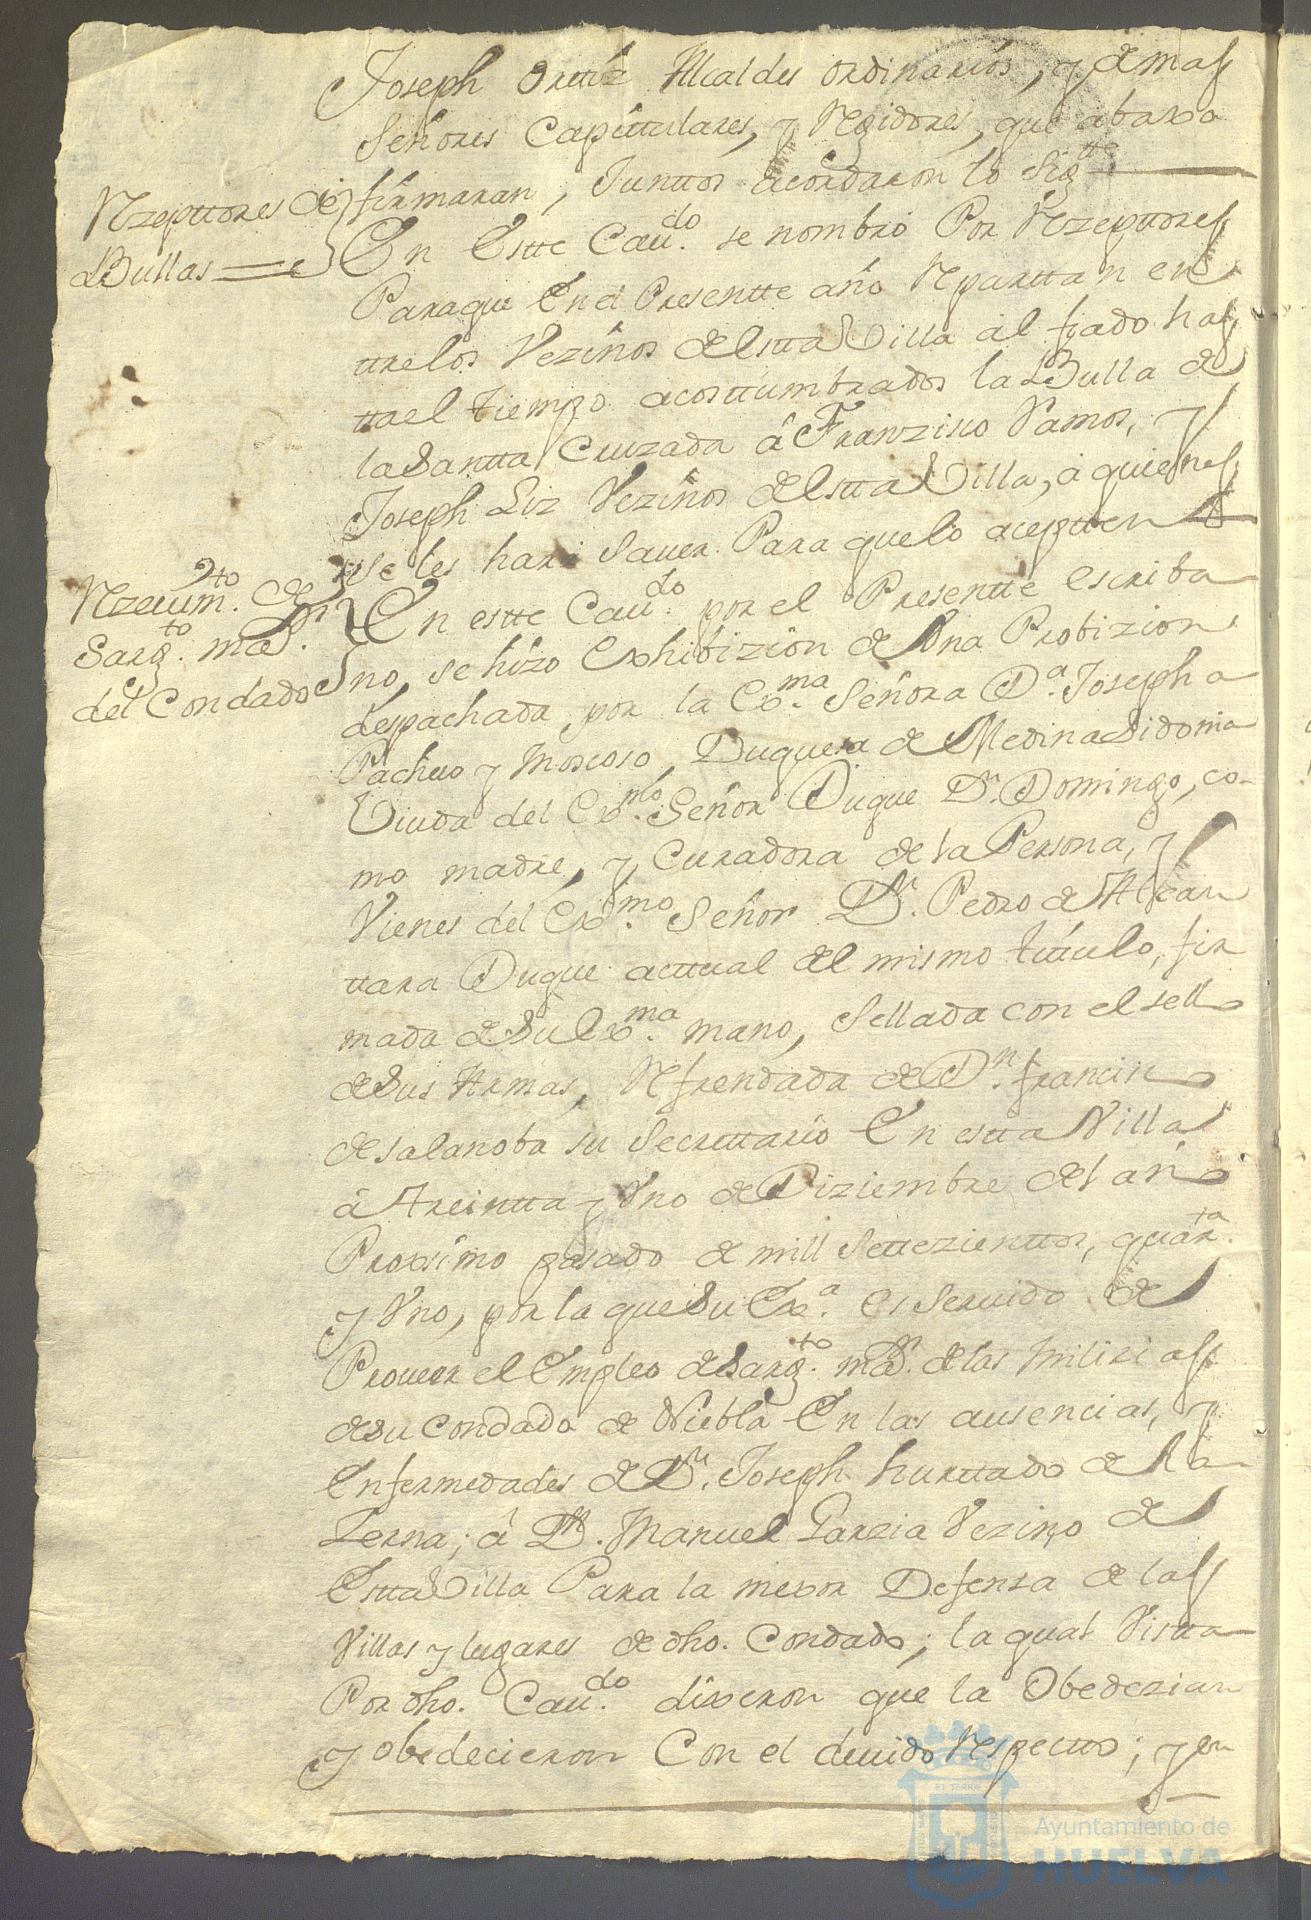 Joseph Orttiz Alcaldes ordinarios, y demas
Señores Capittulares, y Rexidores, que abaxo
firmaran, Junttos acordaron lo Sigtte
Rzepttores de
Bullas
En Estte Caudo. se nombró Por Rzepttores
Paraque En el Presentte año Reparttan en
ttre los Vezinos de Estta Villa al fiado has
tta el tiempo acosttumbrados la Bulla de
la Santta Cruzada á Franzisco Ramos, y
Joseph Liz Vezinos de Estta Villa, a quienes
se les hará Saver Para que lo acepten
Rzeuimto. de
Sargto. mor.
del Condado
En estte Caudo. por el Presentte escriba
no, se hizo Exhibizión de Una Probizion
despachada por la Exma. Señora Da. Josepha
Pacheco y Moscoso, Duquesa de Medina Sidonia
Viuda del Exmo. Señor Duque Dn. Domingo, co-
mo madre, y Curadora de la Persona, y
Vienes del Exmo. Señor Dn. Pedro de Alcan
ttara Duque acttual del mismo título, fir
mada de Su Exma. mano, Sellada con el sello
de Sus Armas, Refrendada de Dn. Francin
de salanoba su Secrettario En estta Villa
á Treintta y Uno de Diziembre del año
Proximo pasado de mill Settezienttos, quarta.
y Uno, por la que Su Exa. es Seruido de
Proueer el Empleo de Sargto. mor. de las Milicias
de su Condado de Niebla En las ausencias, y
Enfermedades de Dn. Joseph hurttado de
á Dn. Manuel Garzia Vezino de
Estta Villa Para la mexor Defensa de las
Villas y lugares de dho. Condado; la qual Vistta
Por dho. Caudo. dixeron que la Obedezian
y obedecieron Con el deuido Respectto; y en
Ayuntamiento de
HUELVA